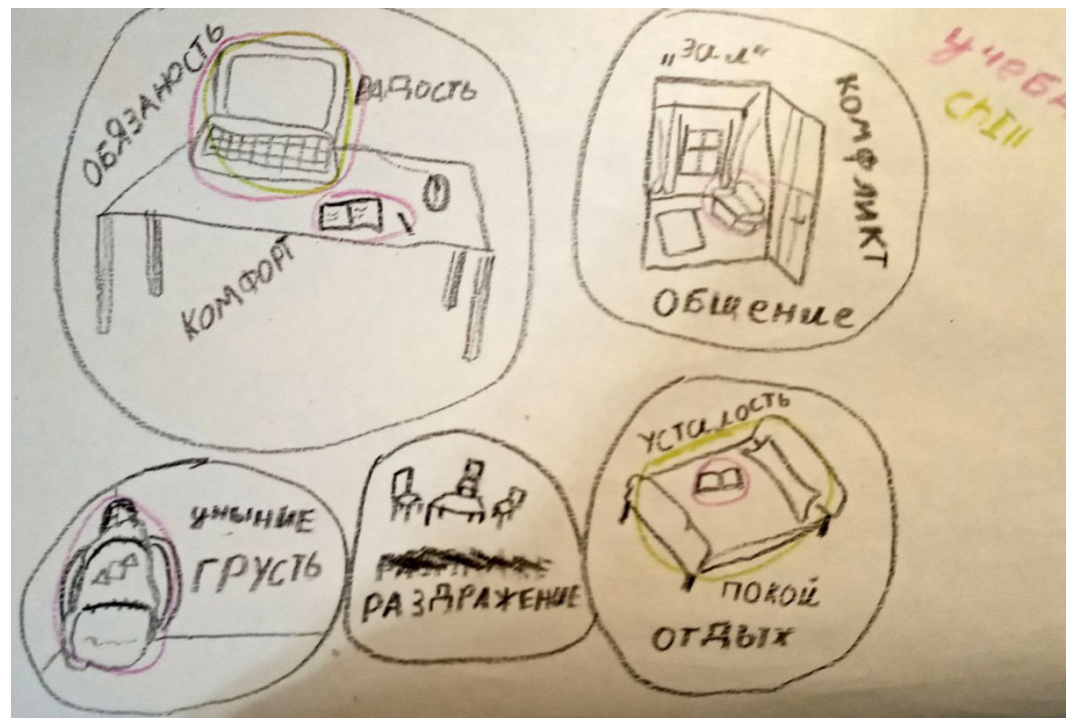 ОБЯЗАНОСТЬ
РАДОСТЬ
КОМФОРТ
„ЗАЛ“
КОМФЛИКТ
ОБЩЕНИЕ
УЧЕБА
ChIll
УНЫНИЕ
ГРУСТЬ
РАЗДРАЖЕНИЕ
УСТАЛОСТЬ
ПОКОЙ
ОТДЫХ